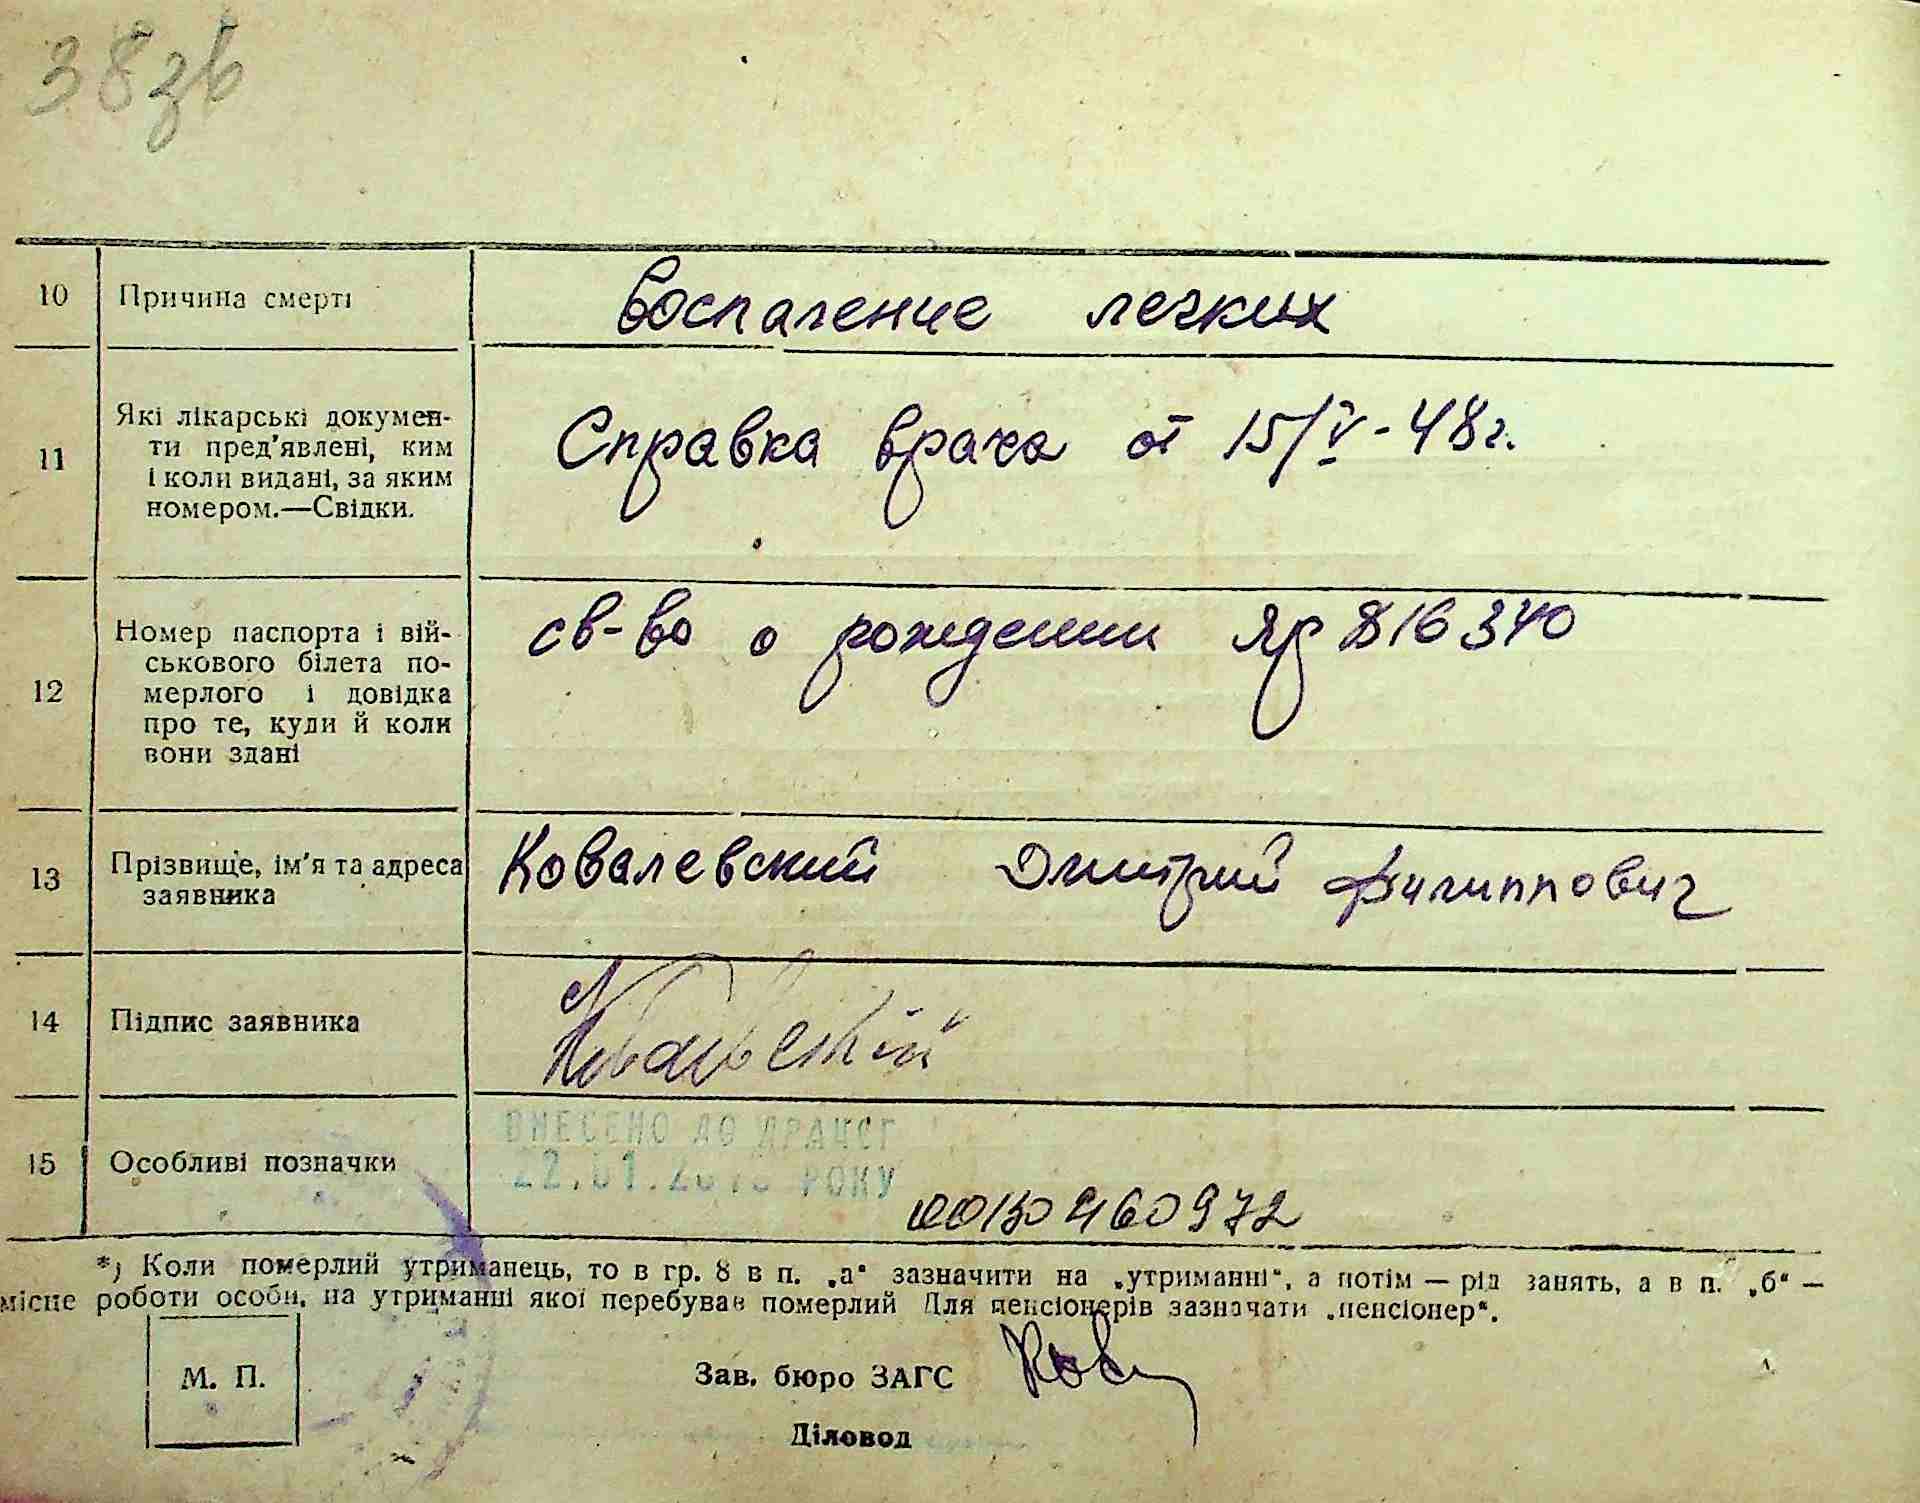 38зв
10 Причина смерті Воспаление легких
11 Які лікарські докумен-
ти пред'явлені, ким
і коли видані, за яким
номером.—Свідки.
Справка врача от 15/V-48г.
12 Номер паспорта і вій-
ськового білета по-
мерлого і довідка
про те, куди й коли
вони здані
св-во о рождении Яр 816340
13 Прізвище, ім'я та адреса
заявника
Ковалевский Дмитрий Филиппович
14 Підпис заявника
15 Особливі позначки
ВНЕСЕНО ДО ДРАЦСГ
РОКУ
00130460972
*) Коли померлий утриманець, то в гр. 8 в п. „а" зазначити на „утриманні", а потім — рід занять, а в п. „б" —
місце роботи особи, на утриманні якої перебував померлий Для пенсіонерів зазначати „пенсіонер".
М. П.
Зав. бюро ЗАГС
Діловод